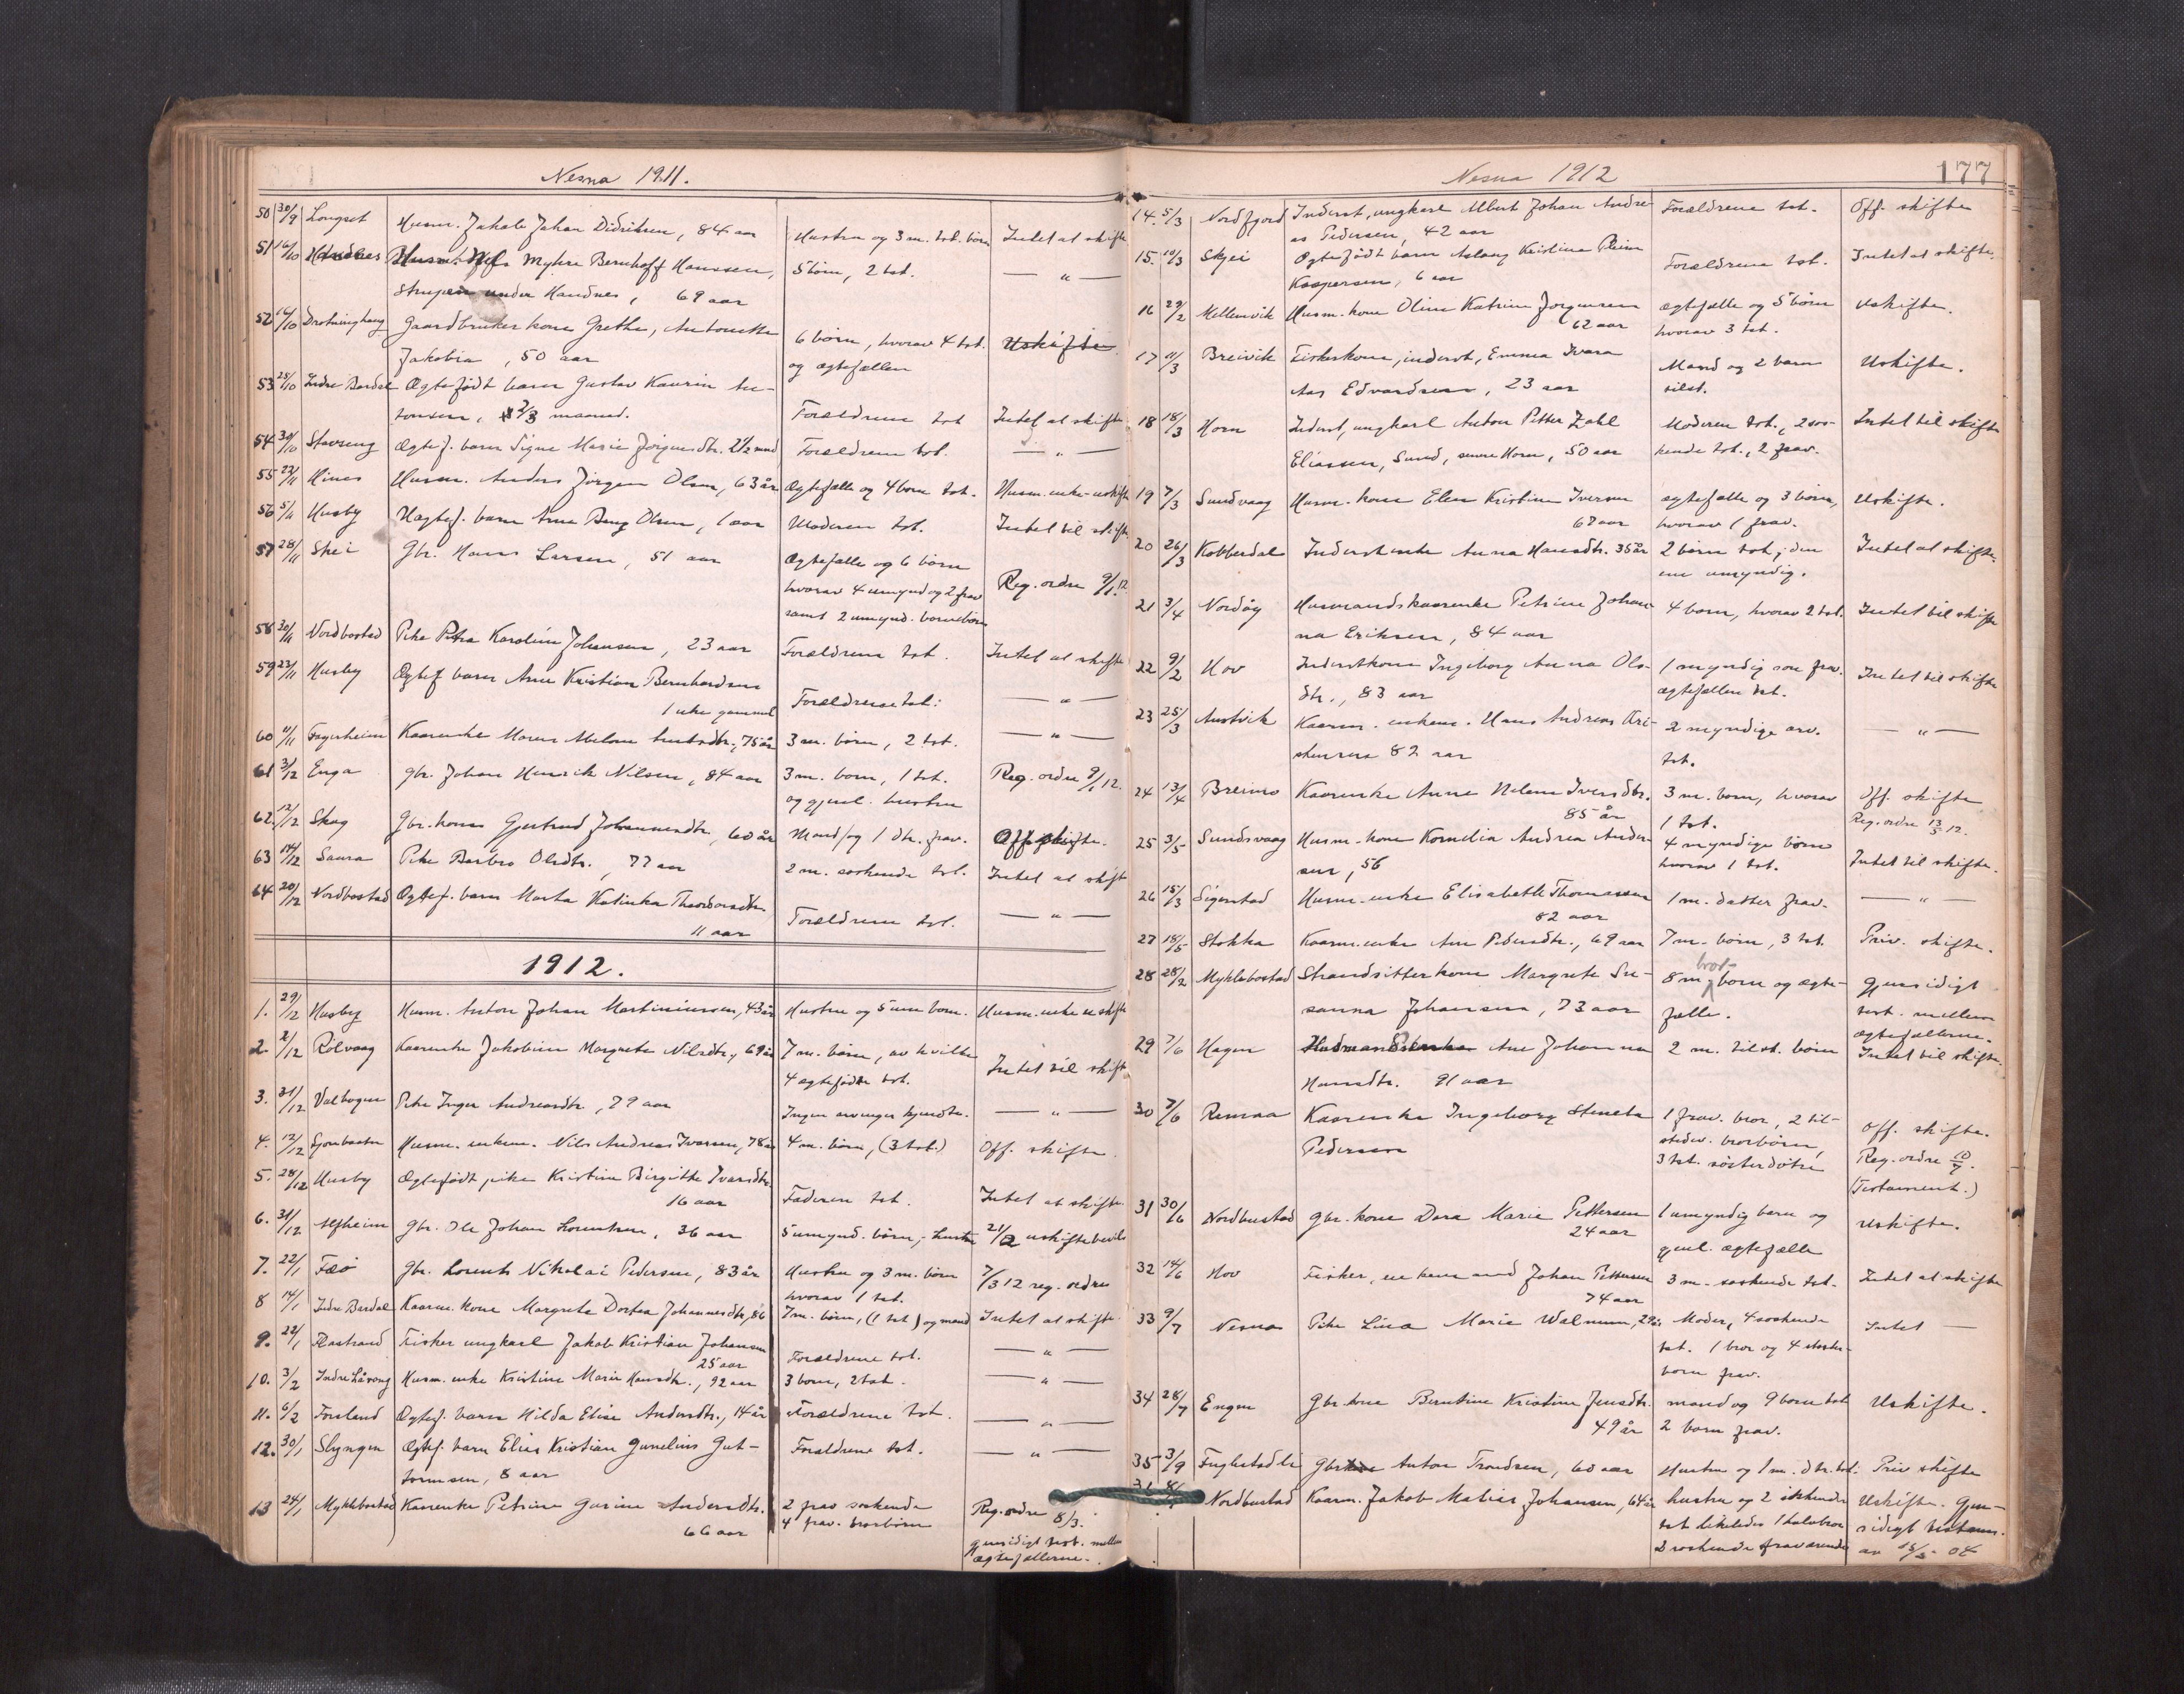 Nesna 1911.
50 30/9 Longset Husm. Jakob Johan Didriksen, 84 aar Hustru og 3 m. tst. børn Intet at skifte
51 16/10 Handnes Husm. Myhre Bernhoff Hanssen, 5 børn, 2 tst. — " —
Strupen under Handnes, 69 aar
52 14/10 Drotninghaug Gaardbruker kone Grethe, Antonette 6 børn, hvorav 4 tst. Uskifte
Jakobia, 50 aar og ægtefællen
53 25/10 Indre Bardal Ægtefødt barn Gustav Kaurin An-
tonsen, 2/3 maaned. Forældrene tst Intet at skifte
54 30/10 Stavseng Ægtef. barn Signe Marie Jørgensdtr. 2 1/2 mnd Forældrene tst. — " —
55 22/11 Hines Husm. Anders Jørgen Olsen, 63 år Ægtefælle og 4 børn tst. Husm. enke-uskifte
56 5/11 Husby Uægtef. barn Arne Olsen, 1 aar Moderen tst. Intet til skifte
57 28/11 Skei Gbr. Hans Larsen, 51 aar Ægtefælle og 6 børn
hvorav 4 umynd og 2 frav Reg. ordre 9/1.12.
samt 2 umynd. barnebørn
58 30/11 Nordbostad Pike Petra Karoline Johansen, 23 aar Forældrene tst. Intet at skifte
59 23/11 Husby Ægtef barn Arne Kristian Bernhardsen
1 uke gammel Forældrene tst. — " —
60 11/11 Fagerheim Kaarenke Maren Antonsdtr., 75 år 3 m. børn, 2 tst. — " —
61 3/12 Enga Gbr. Johan Henrik Nilsen, 84 aar 3 m. born, 1 tst. Reg. ordre 9/1 12.
og gjenl. hustru
62. 12/12 Skog Gbr. kone Gjertrud Johannesdtr, 60 år Mand og 1 dtr. frav. Off skifte.
63 14/12 Saura Pike Barbro Olsdtr., 77 aar 2 m. søskende tst. Intet at skifte
64 20/12 Nordbostad Ægtef. barn Marta Katinka Theodorsdtr.
11 aar Forældrene tst. — " —
1912.
1. 29/12 Husby Husm. Anton Johan Martiniussen, 43 år Hustru og 5 um born. Husm. enke uskifte
2. 2/12 Rölvaag Kaarenke Jakobine Margrete Nilsdtr, 69 år 7 m. børn, av hvilke Intet til skifte
4 ægtefødte tst.
3. 31/12 Valbogen Pike Inger Andreasdtr, 79 aar Ingen arvinger kjendte. — " —
4. 12/12 Sjonbotn Husm. enkem. Nils Andreas Ivarsen, 78 år 4 m. børn, (3 tst.) Off. skifte.
5. 28/12 Husby Ægtefødt pike Kristine Birgitte Ivarsdtr.
16 aar Faderen tst. Intet at skifte.
6. 31/12 Alfheim Gbr. Ole Johan Lorentsen, 36 aar 5 umynd. børn, hustru 21/2 uskiftebevil
7. 22/1 Fæø Gbr. Lorents Nikolai Pedersen, 83 år Hustru og 3 m. børn 7/3 12 reg. ordre
hvorav 1 tst.
8 14/1 Indre Bardal Kaarm. kone Margrete Dortea Johannesdtr, 86 7 m. børn, (1 tst) og mand Intet at skifte.
9. 22/1 Flostrand Fisker ungkarl Jakob Kristian Johansen
25 aar Forældrene tst. — " —
10. 3/2 Indre Låvong Husm. enke Kristine Marie Hansdtr., 92 aar 3 born, 2 tst. — " —
11. 6/2 Forsland Ægtef. barn Hilda Elise Andersdtr., 14 år Forældrene tst. — " —
12. 30/1 Slyngen Ægtef. barn Elias Kristian Gunelius Gut- Forældrene tst. — " —
tormsen, 8 aar
13 24/1 Myklebostad Kaarenke Petrine Gurine Andersdtr. 2 frav søskende Reg. ordre 8/3.
66 aar 4 frav. brorbörn
gjensidigt test. mellem
ægtefællerne.
Nesna 1912 177
14. 5/3 Nordfjord Inderst, ungkarl Albert Johan Andre- Forældrene tst. Off. skifte
as Pedersen, 42 aar
15. 10/3 Skjei Ægtefødt barn Aslaug Kristine Forældrene tst. Intet at skifte.
Kaspersen, 6 aar
16 29/2 Mellemvik Husm. kone Oline Katrine Jørgensen ægtefælle og 5 børn Uskifte.
62 aar hvorav 3 tst.
17 11/3 Breivik Fiskerkone, inderst, Emma Ivara Mand og 2 barn Uskifte.
Aas Edvardsen, 23 aar tilst.
18 18/3 Horn Inderst, ungkarl Anton Petter Zahl Moderen tst., 2 søs- Intet til skifte
Eliassen, Sund, Horn, 50 aar kende tst., 2 frav.
19 7/3 Sundvaag Husm. kone Elen Kristine Iversen ægtefælle og 3 børn, Uskifte.
67 aar hvorav 1 frav.
20 26/3 Kobberdal Inderst enke Anna Hansdtr. 35 år 2 børn tst, den Intet at skifte.
ene umyndig.
21 3/4 Nordøy Husmandskaarenke Petrine Johan- 4 born, hvorav 2 tst. Intet til skifte
na Eriksen, 84 aar
22 9/2 Hov Inderstkone Ingeborg Anna Ols- 1 myndig søn frav. Intet til skifte
dtr., 83 aar ægtefællen tst.
23 25/3 Austvik Kaarm. enkem. Hans Andreas Kri- 2 myndige arv. — " —
stensen 82 aar tst.
24 13/4 Breimo Kaarenke Anne Helene Iversdtr. 3 m. born, hvorav Off. skifte
85 år 1 tst. Reg. ordre 13/5 12.
25 3/5 Sundsvaag Husm. kone Kornelia Andrea Ander- 4 myndige børn
sen, 56 hvorav 1 tst. Intet til skifte.
26 15/3 Sigerstad Husm. enke Elisabeth Thomassen 1 m. datter frav. — " —
82 aar
27 18/5 Stokka Kaarm. enke Ane Petersdtr., 69 aar 7 m. børn, 3 tst. Priv. skifte.
28 28/2 Myklebostad Strandsitterkone Margrete Su- 8 m. bror- born og ægte- Gjensidigt
sanna Johansen, 73 aar fælle. test. mellem
ægtefællerne.
29 7/6 Hagen Ane Johanna 2 m. tilst. börn Intet til skifte.
Hansdtr. 91 aar
30 7/6 Remaa Kaarenke Ingeborg 1 frav. bror, 2 til- Off. skifte.
Pedersen stedev. brorbörn, Reg. ordre 10/7.
3 tst. søsterdøtre (Testament.)
31 30/6 Nordbustad Gbr. kone Dora Marie Pettersen 1 umyndig barn og Uskifte.
24 aar gjenl. ægtefælle
32 14/6 Hov Fisker, Johan Pettersen 3 m. søskende tst. Intet at skifte
74 aar
33 9/7 Nesna Pike Lina Marie Walnum, 29 Moder, 4 søskende Intet —
tst. 1 bror og 4 søster-
born frav.
34 28/7 Engen Gbr. kone Berntine Kristine Jensdtr. mand og 9 born tst Uskifte.
49 år 2 born frav.
35 3/9 Fuglstadli Gbr Anton Trondsen, 60 aar Hustru og 1 m. dtr. tst. Priv skifte
Nordbustad Kaarm. Jakob Matias Johansen, 64 år hustru og 2 søskende Uskifte. Gjen-
tst likeledes 1 halvbror sidigt testam.
2 søskende fraværende av 15/5 04